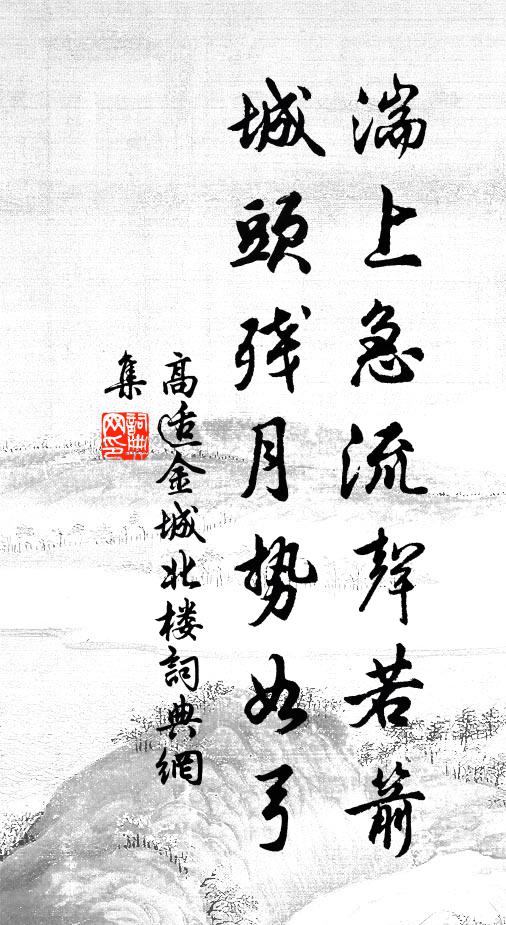 湍上急流聲若箭
城頭残月势如弓
高适金城北楼詞典網
集